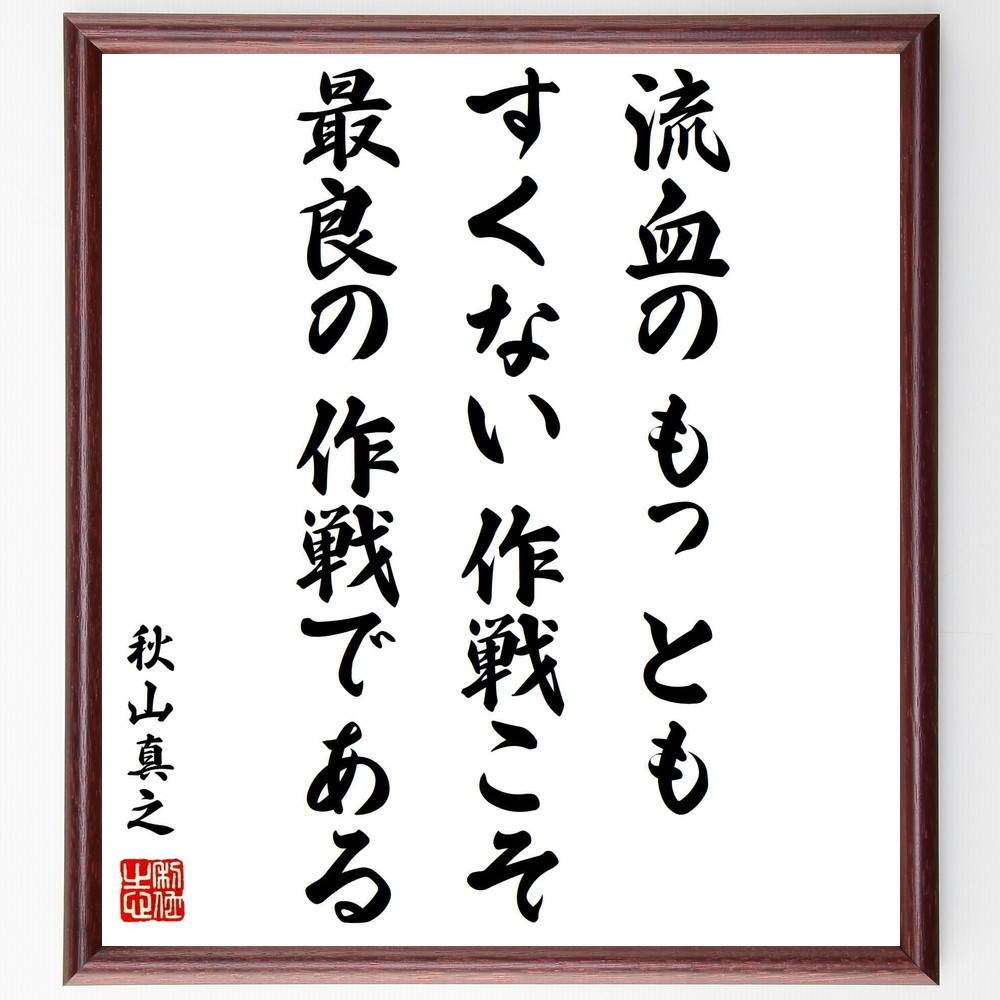 流血のもっとも
すくない作戦こそ
最良の作戦である
秋山真之